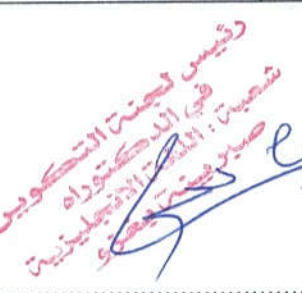 رئيس لجنة التكوين
في الدكتوراه
شعبة : اللغة الإنجليزية